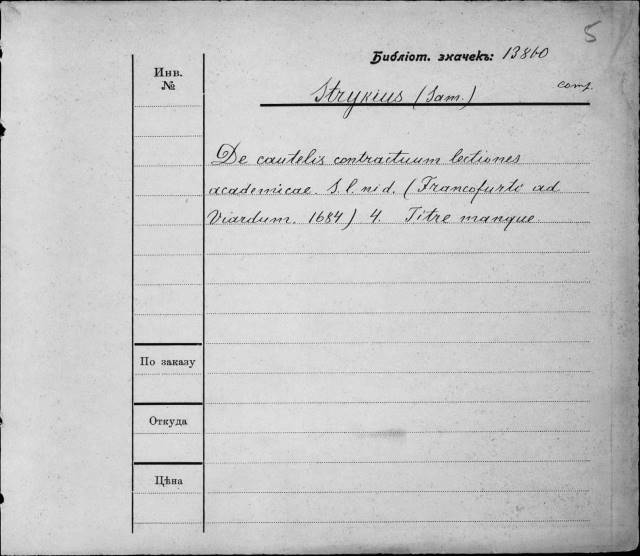 5
Библіот. значекъ: 13860
Инв.
№
Strykius (Sam.) comp.
De cautelis contractuum lectiones
academicae. S. l. ni d. (Francofurto ad
Viardum. 1684) 4. Titre manque
По заказу
Откуда
Цѣна